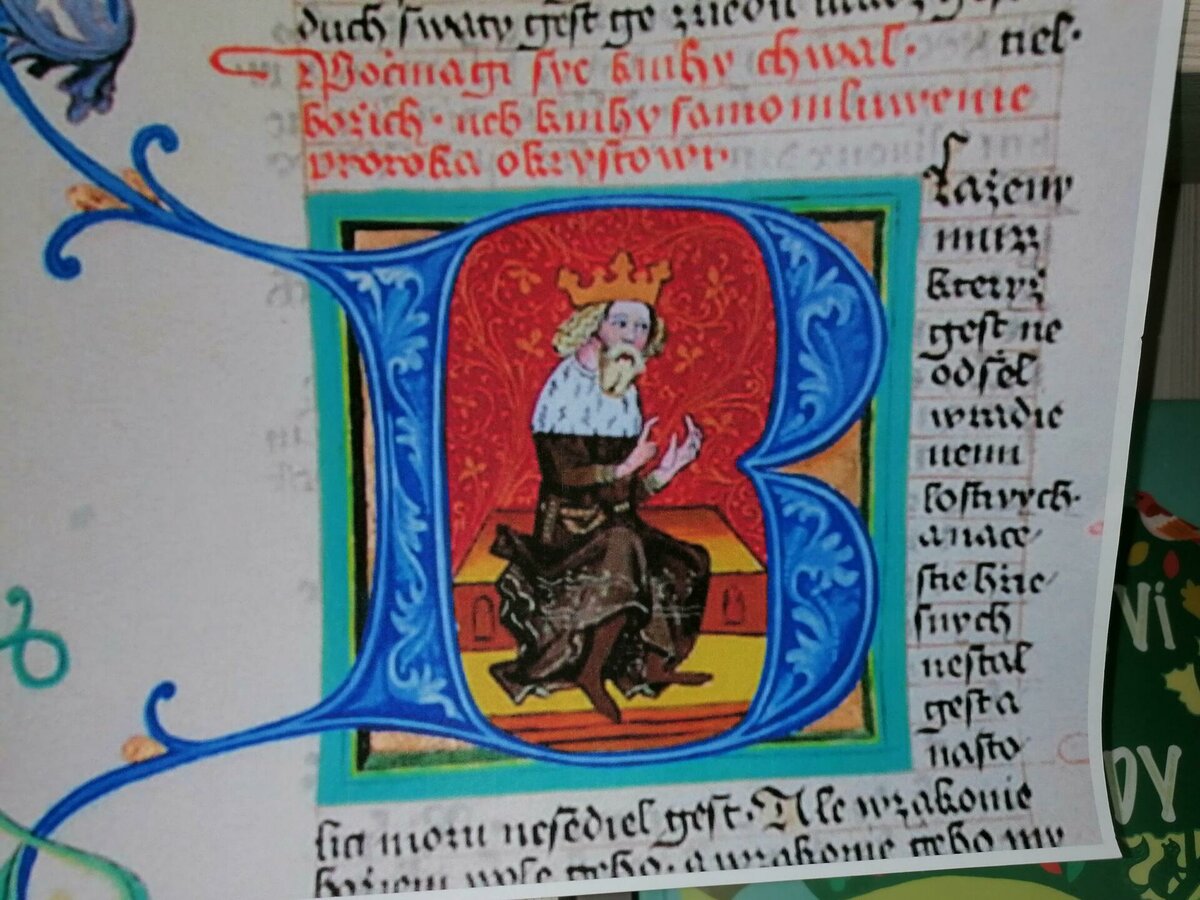 duch ſwaty geſt ge
tiel.
Počinagi ſye knihy chwal.
božich. neb knihy ſamomluwenie
proroka okryſtowi.
B
laženy
muzz
kteryž
geſt ne
odſſel
wradie
nemi
loſtiwych.
anace
ſtie hrzie
ſnych
neſtal
geſt a
naſto
lici moru neſediel geſt. Ale wzakonie
božiem wole geho. awzakonie geho my
VI
DY